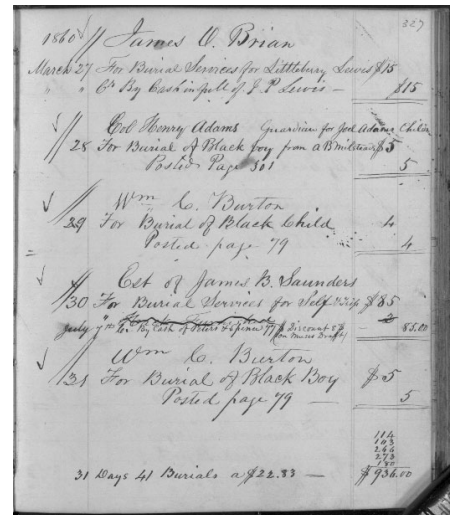 327
1860 // James O. Brian
March 27 For Burial Services for Littlebury Lewis $15
" " Cr By Cash in full of J P Lewis — $15
Col Henry Adams Guardian for Joel Adams Childn
// 28 For Burial of Black boy from a B $5
Posted Page 501 5
Wm C. Burton
// 29 For Burial of Black Child 4
Posted page 79 4
Est of James B. Saunders
// 30 For Burial Services for Self $85
July 7th Cr By Cash of 77 $ Discount 8$ 85.00
Wm C. Burton
// 31 For Burial of Black Boy $5
Posted page 79 — 5
114
103
266
273
180
31 Days 41 Burials a $22.83 — $936.00